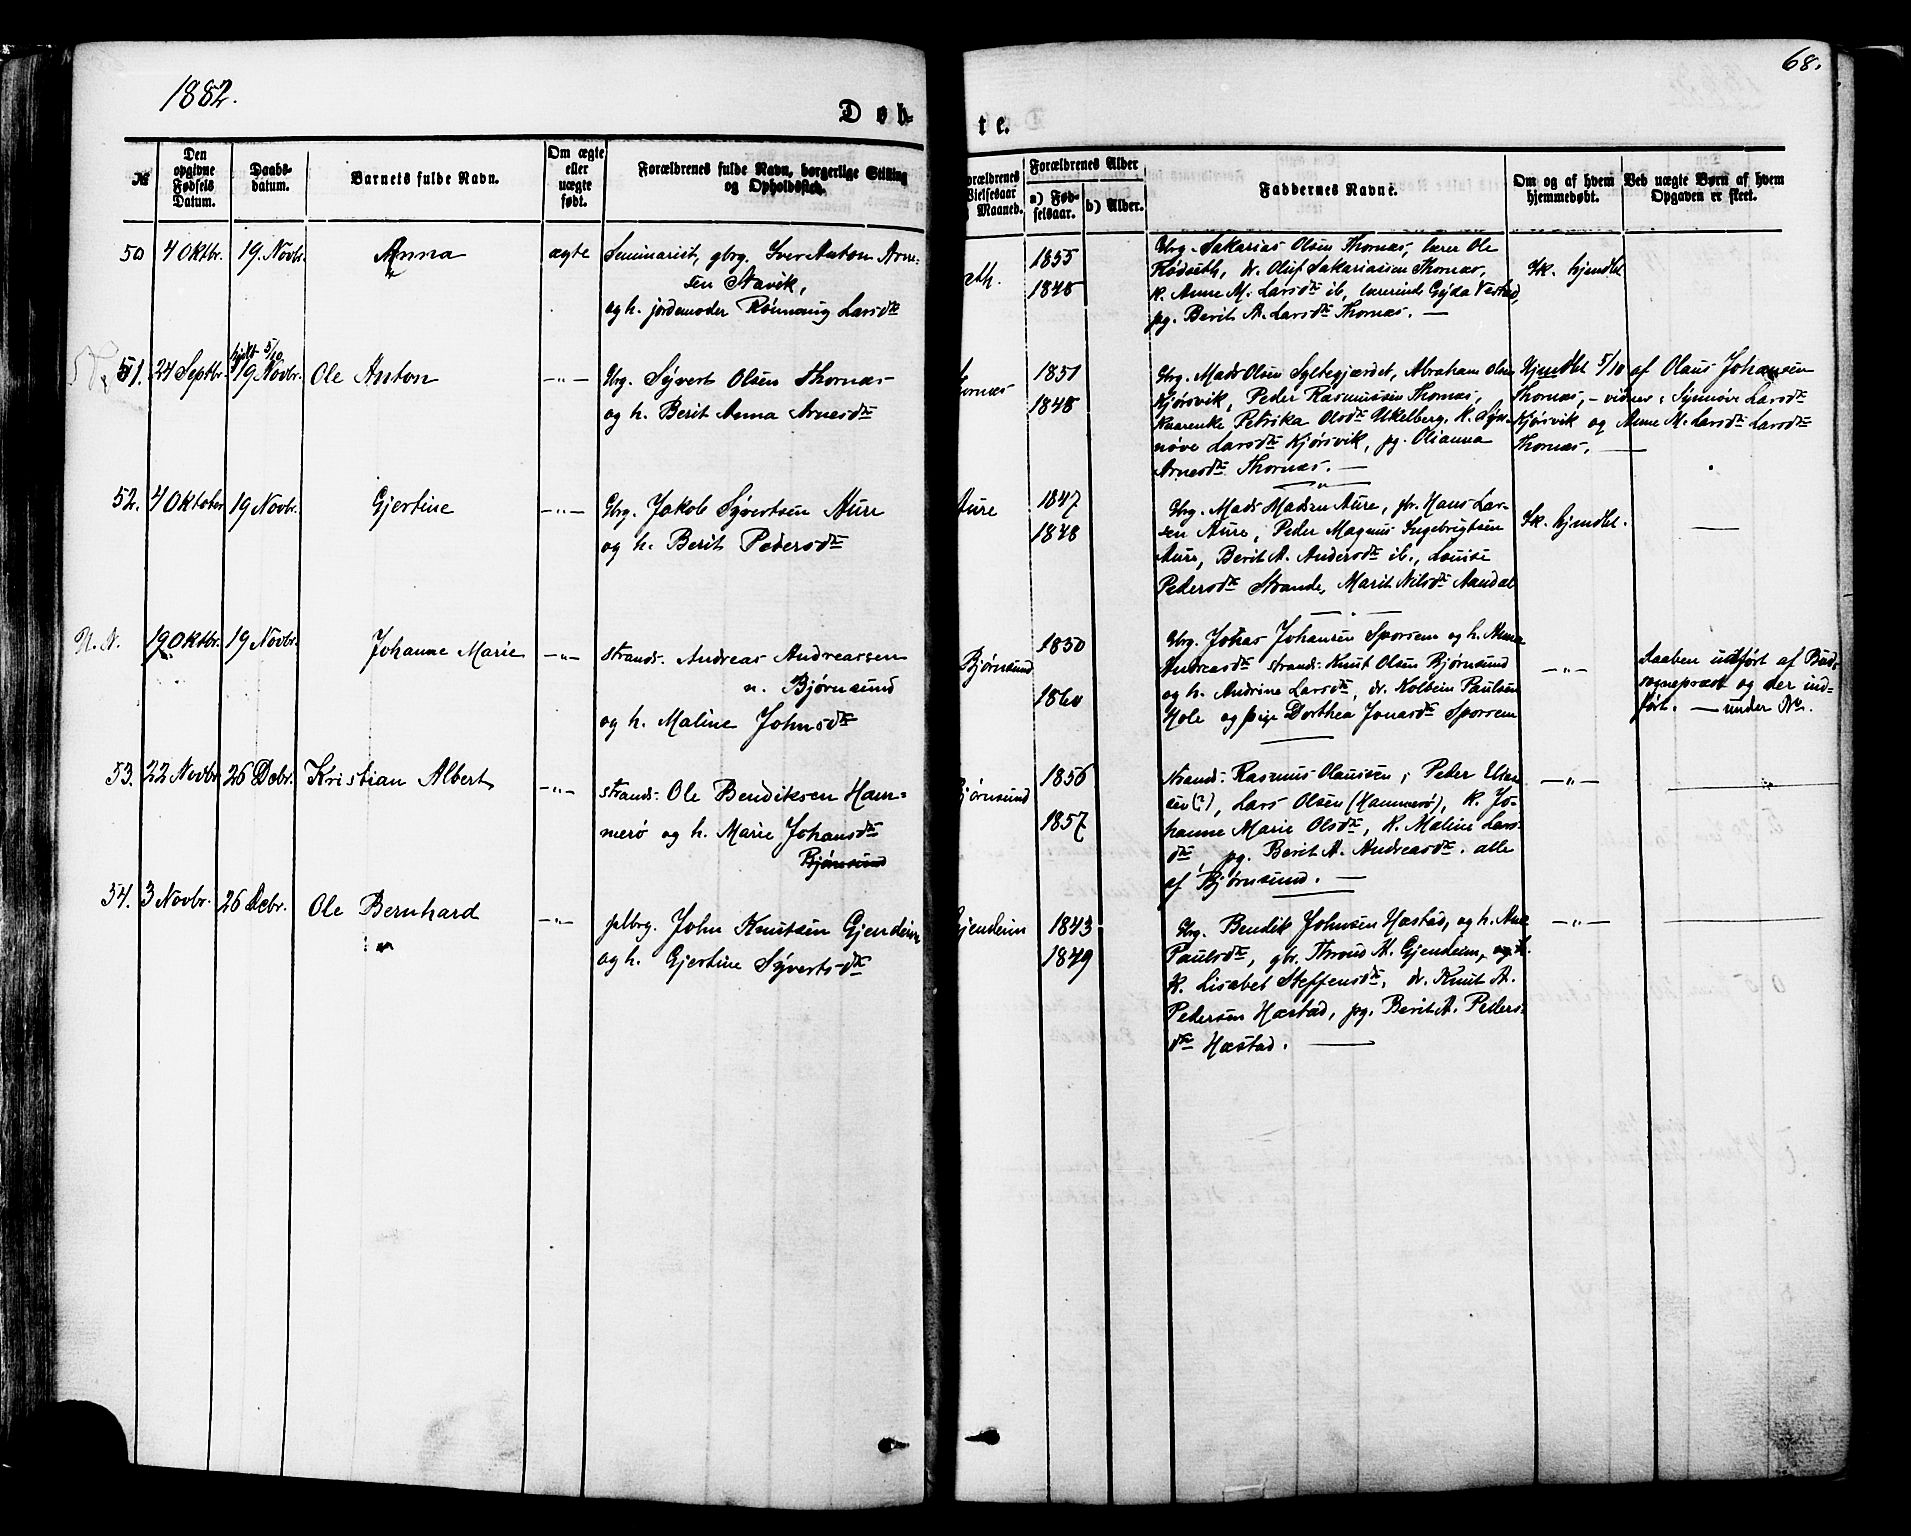 1882.
68.
Døb-
te.
№
Den opgivne Fødsels Datum.
Daabsdatum.
Barnets fulde Navn.
Om ægte eller uægte født.
Forældrenes fulde Navn, borgerlige Stilling og Opholdssted.
Forældrenes Vielsesaar og Maaned.
Forældrenes Alder
a) Fødselsaar.
b) Alder.
Faddernes Navne.
Om og af hvem hjemmedøbt.
Ved uægte Børn af hvem Opgaven er skeet.
50 4 Oktbr. 19. Novbr. Anna ægte
Seminarist, gbrg. Iver Anton Arne-
sen Stavik,
og h. jordemoder Rønnaug Larsdtr
1855
1848
Gbrg. Sakarias Olsen Thornæs, lærer Ole
Rødseth, dr. Oluf Sakariassen Thornæs,
k. Anne M. Larsdtr ib, lærerinde Gyda Vestad,
pg. Berit A. Larsdtr Thornæs. —
Ik. hjmdbt
51. 24 Septbr. hjdbt 5/10 19 Novbr. Ole Anton —"—
Gbrg. Syvert Olsen Thornæs
og h. Berit Anna Arnesdtr
Thornæs
1851
1848
Gbrg. Mads Olsen Syltegjærdet, Abraham Olsen
Kjørsvik, Peder Rasmussen Thornæs,
kaarenke Petrika Olsdtr Ukelberg, k. Syn-
nøve Larsdtr Kjørsvik, pg. Olianna
Arnesdtr Thornæs. —
Hjmdbt 5/10 af Olaus Johansen
Thornæs, – vidner: Synnøve Larsdtr
Kjørsvik og Anne M. Larsdtr Larsdtr
Thornæs. —
52. 4 Oktober 19 Novbr. Gjertine —"—
Gbrg. Jakob Syvertsen Aure
og h. Berit Pedersdtr
Aure
1847
1848
Gbrg. Mads Madsen Aure, gbr. Hans Lar-
sen Aure, Peder Magnus Ingebrigtsen
Aure, Berit A. Andersdtr ib., Louise
Pedersdtr Strande, Marit Nilsdtr Aandal
Ik. hjmdbt. —
N. N. 19 Oktbr. 19 Novbr. Johanne Marie —"—
strands. Andreas Andreassen
n. Bjørnsund
og h. Maline Johnsdtr
Bjørnsund
1850
1860
Gbrg. Johas Johansen Sporsem og h. Anna
Andreasdtr strands: Knut Olsen Bjørnsund
og h. Andrine Larsdtr, dr. Kolbein Paulsen
Hole og pige Dorthea Jonasdtr Sporsem
—"—
Daaben udført af Bud.
sognepræst og der ind-
ført. — under No.
53. 22 Novbr 26 Debr. Kristian Albert —"—
strands: Ole Bendiksen Ham-
merø og h. Marie Johansdtr
Bjørnsund
Bjørnsund
1856
1857
Strands: Rasmus Olaussen; Peder Elias-
sen(?), Lars Olsen (Hammerø), k. Jo-
hanne Marie Olsdtr, k. Maline Lars-
dtr, pg. Berit A. Andreasdtr. alle
af Bjørnsund. —
—"—
54. 3 Novbr. 26 Debr. Ole Bernhard —"—
gbrg. John Knutsen Gjendem
og h. Gjertine Syvertsdtr
Gjendem
1843
1849
Gbrg. Bendik Johnsen Hæstad, og h. Ane
Paulsdtr, gbr. Thrond A. Gjendem, og h.
k. Lisabet Steffensdtr, dr. Knut A.
Pedersen Hæstad, pg. Berit A. Peders-
dtr Hæstad. —
—"—